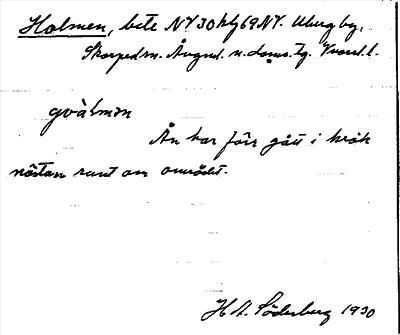 Holmen, bete NV 30 hbg 69 NV. Uberg by,
Skorped sn. Ångml. n. doms. tg. V
gvàlmən
Ån har förr gått i krok
nästan runt om området.
H A. Söderberg 1930